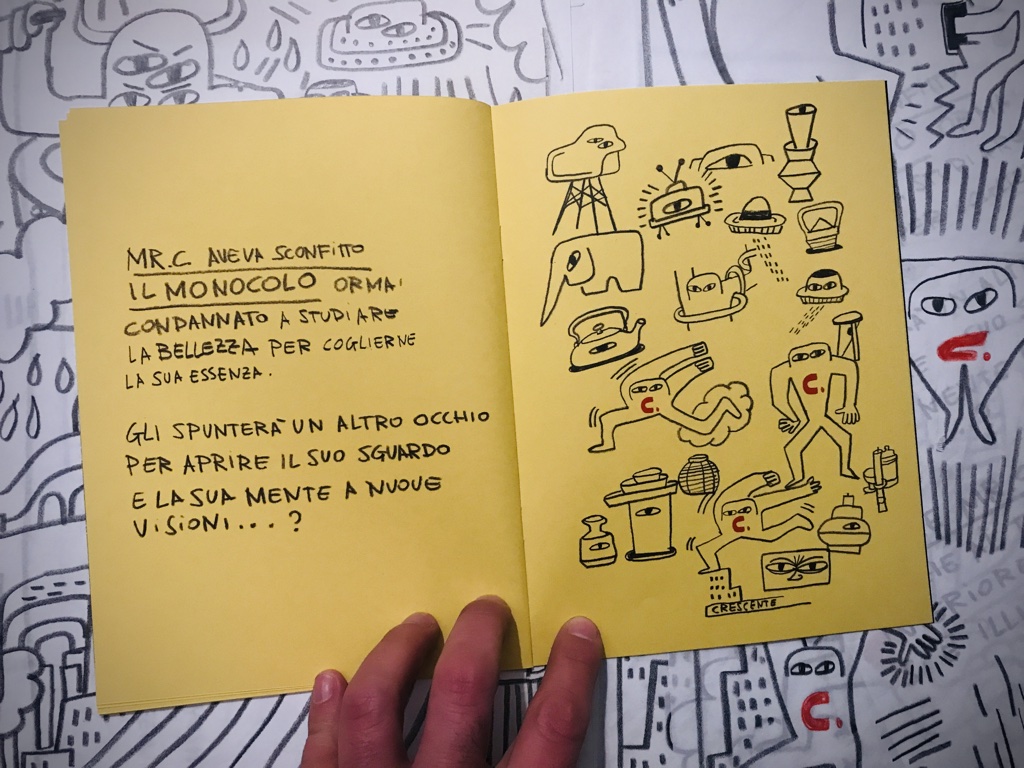 MR.C. AVEVA SCONFITTO
IL MONOCOLO ORMAI
CONDANNATO A STUDIARE
LA BELLEZZA PER COGLIERNE
LA SUA ESSENZA.
GLI SPUNTERÀ UN ALTRO OCCHIO
PER APRIRE IL SUO SGUARDO
E LA SUA MENTE A NUOVE
VISIONI...?
C.
C.
C.
CRESCENTE
C.
C.